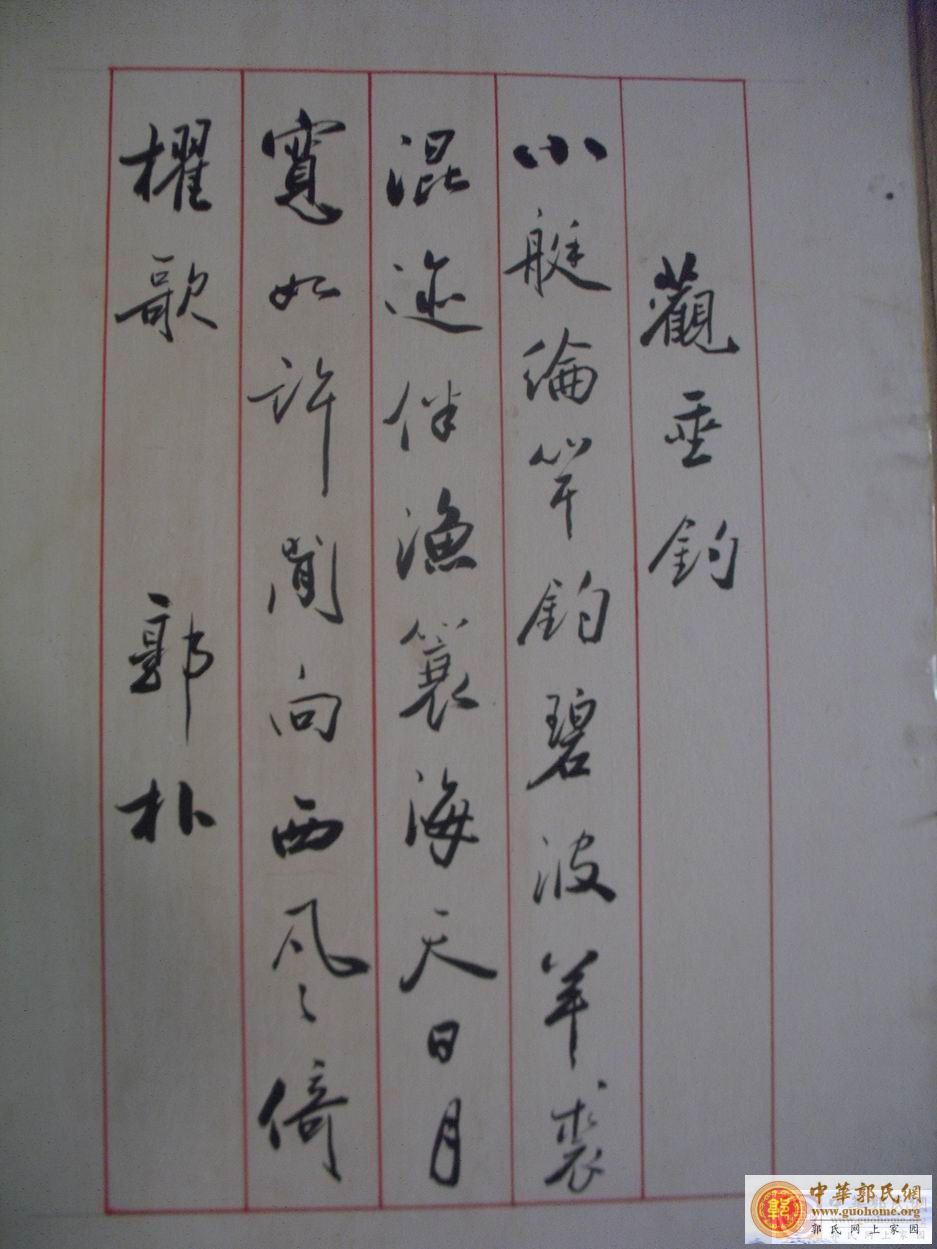 觀垂釣
小艇綸竿釣碧波羊裘
混迹伴漁蓑海天日月
寬如許閒向西風倚
櫂歌 郭朴
中華郭氏網
www.guohome.org
郭氏网上家园